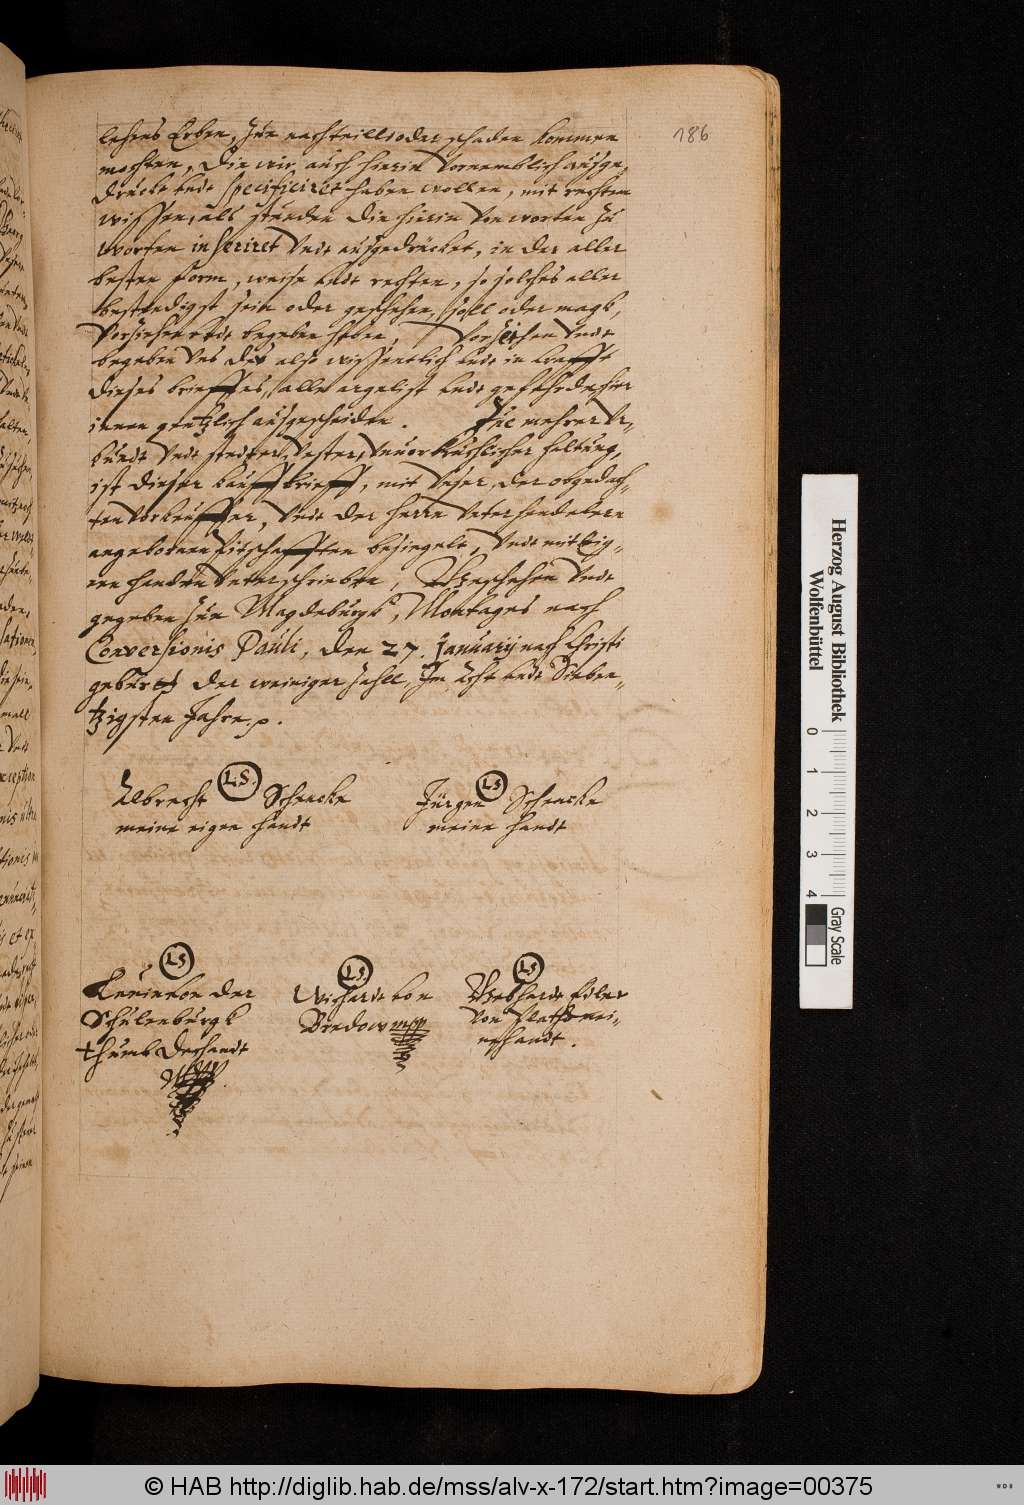 186
lehens Erben, zue nachteill oder schaden kommen
mochten, Die wir auch hierin vornemblich ausge„
druckt undt specificiret haben wollen, mit rechtem
wissen, als stunden Die hierin von worten zu
worten inseriret undt ausgedrücket, in der aller
besten form, weise undt rechten, so solches aller
bestendigst sein oder geschehen, soll oder magk,
begeben uns des also wissentlich undt in krafft
dieses brieffes, alle argelist undt gefehrde hier
innen gentzlich ausgescheiden. Zue mehrer Ur„
kundt undt steter, vester, unvorbruchlicher haltung,
ist dieser kauffbrieff, mit unser, der obgedach„
ten vorkeuffer, undt der herrn unterhendelern
angebornen Pitschafften besiegelt, undt mit eig„
nen handen unterschrieben, Geschehen undt
gegeben zue Magdeburgk, Montages nach
Conversionis Pauli, den 27. Januarij nach Christi
geburt der weiniger zahll, Im Acht undt Sieben„
tzigsten Jahre.
Albrecht LS. Schencke
meine eigen handt
Jürgen LS Schencke
meine handt
LS
Levin von der
Schulenburgk
thumb Dechandt
LS
Wichardt von
Bredow mpp
LS
Gebhardt Edler
von Platho mei„
ne handt.
Herzog August Bibliothek
Wolfenbüttel
0 1 2 3 4
Gray Scale
© HAB http://diglib.hab.de/mss/alv-x-172/start.htm?image=00375